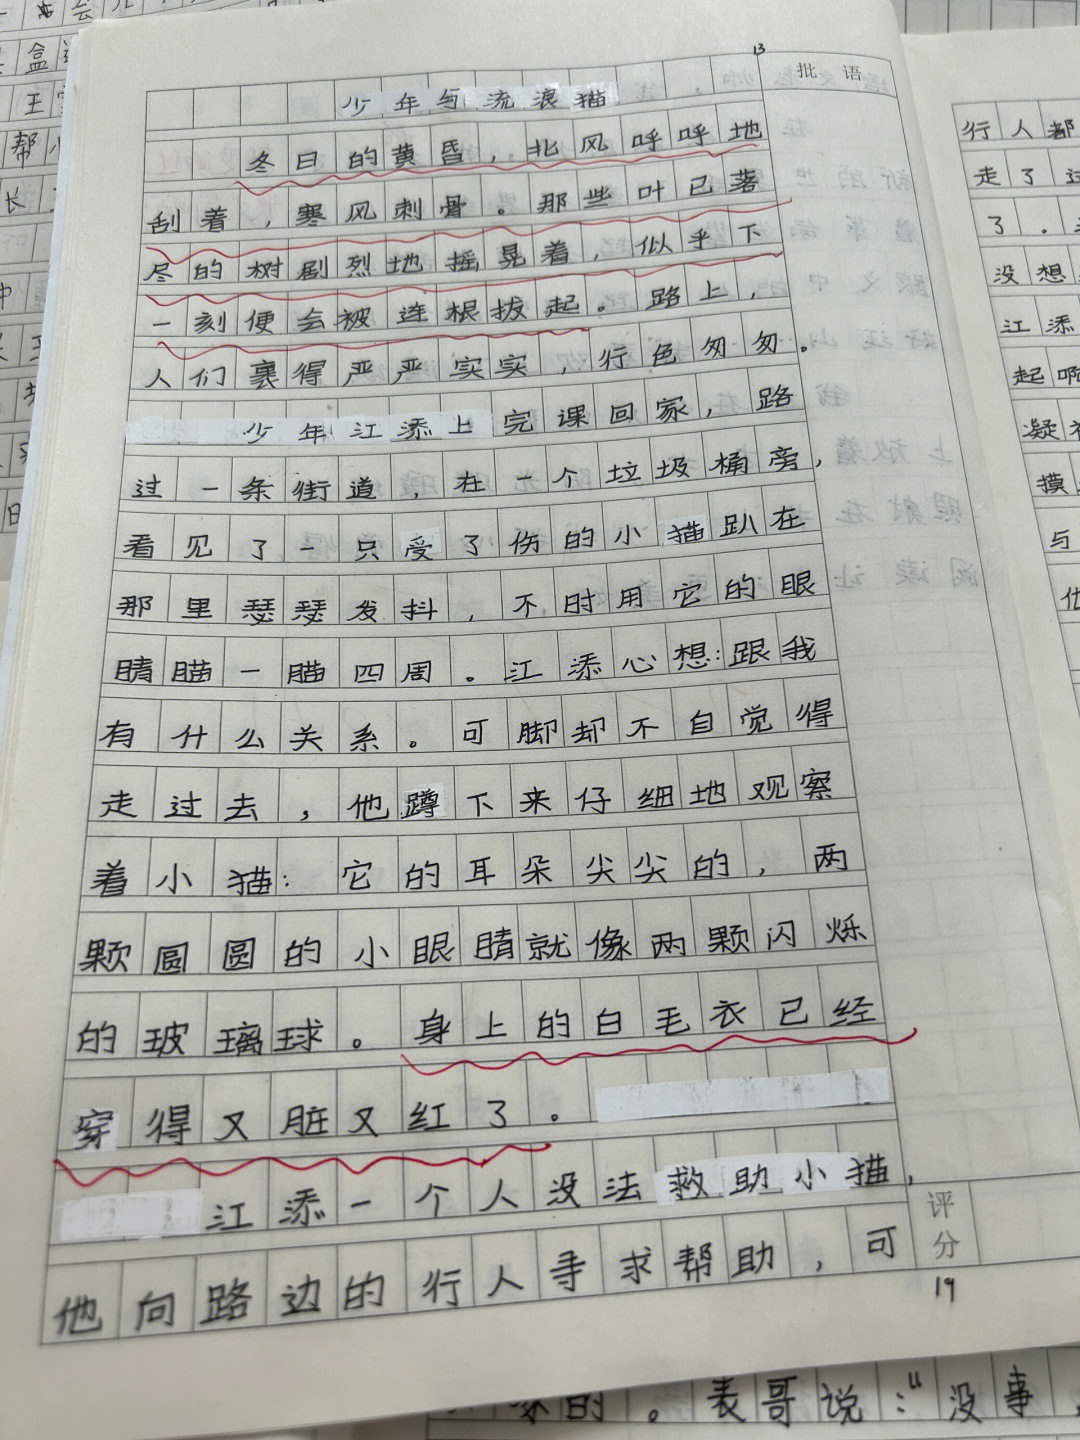 13
批语
少年与流浪猫
冬日的黄昏，北风呼呼地
刮着，寒风刺骨。那些叶已落
尽的树剧烈地摇晃着，似乎下
一刻便会被连根拔起。路上，
人们裹得严严实实，行色匆匆。
少年江添上完课回家，路
过一条街道，在一个垃圾桶旁，
看见了一只受了伤的小猫趴在
那里瑟瑟发抖，不时用它的眼
睛瞄一瞄四周。江添心想：跟我
有什么关系。可脚却不自觉得
走过去，他蹲下来仔细地观察
着小猫：它的耳朵尖尖的，两
颗圆圆的小眼睛就像两颗闪烁
的玻璃球。身上的白毛衣已经
穿得又脏又红了。
江添一个人没法救助小猫，
他向路边的行人寻求帮助，可
评分
19
行人都
走了过
了。
没想
江添
起啊
凝视
摸
与
他
的。表哥说：“没事
盒
王
帮小
长